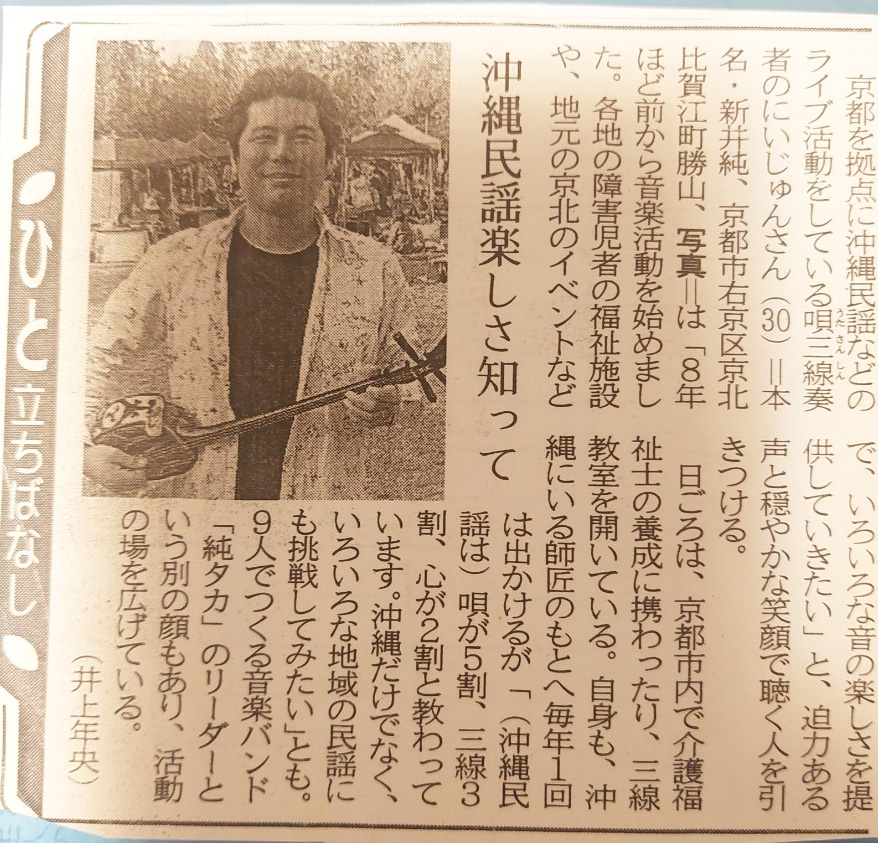 ひと立ちばなし
沖縄民謡楽しさ知って
　京都を拠点に沖縄民謡などの
ライブ活動をしている唄三線奏
うたさんしん
者のにいじゅんさん（30）＝本
名・新井純、京都市右京区京北
比賀江町勝山、写真＝は「８年
ほど前から音楽活動を始めまし
た。各地の障害児者の福祉施設
や、地元の京北のイベントなど
で、いろいろな音の楽しさを提
供していきたい」と、迫力ある
声と穏やかな笑顔で聴く人を引
きつける。
　日ごろは、京都市内で介護福
祉士の養成に携わったり、三線
教室を開いている。自身も、沖
縄にいる師匠のもとへ毎年１回
は出かけるが「（沖縄民
謡は）唄が５割、三線３
割、心が２割と教わって
います。沖縄だけでなく、
いろいろな地域の民謡に
も挑戦してみたい」とも。
９人でつくる音楽バンド
「純タカ」のリーダーと
いう別の顔もあり、活動
の場を広げている。
（井上年央）